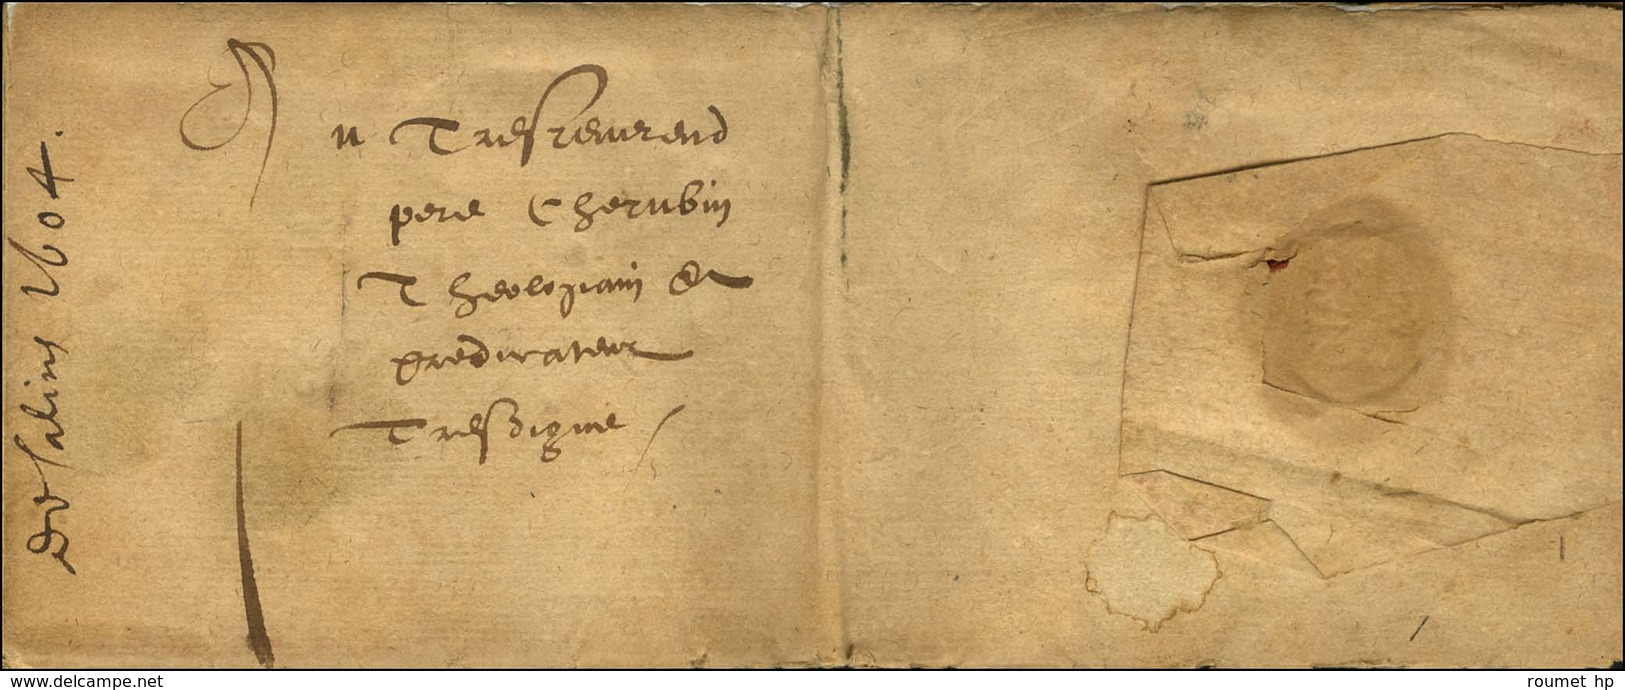 Au Tresreverend
pere Cherubin
Theologiain &
predicateur
Tresdigne /
de Salins 1604.
www.delcampe.net
roumet hp